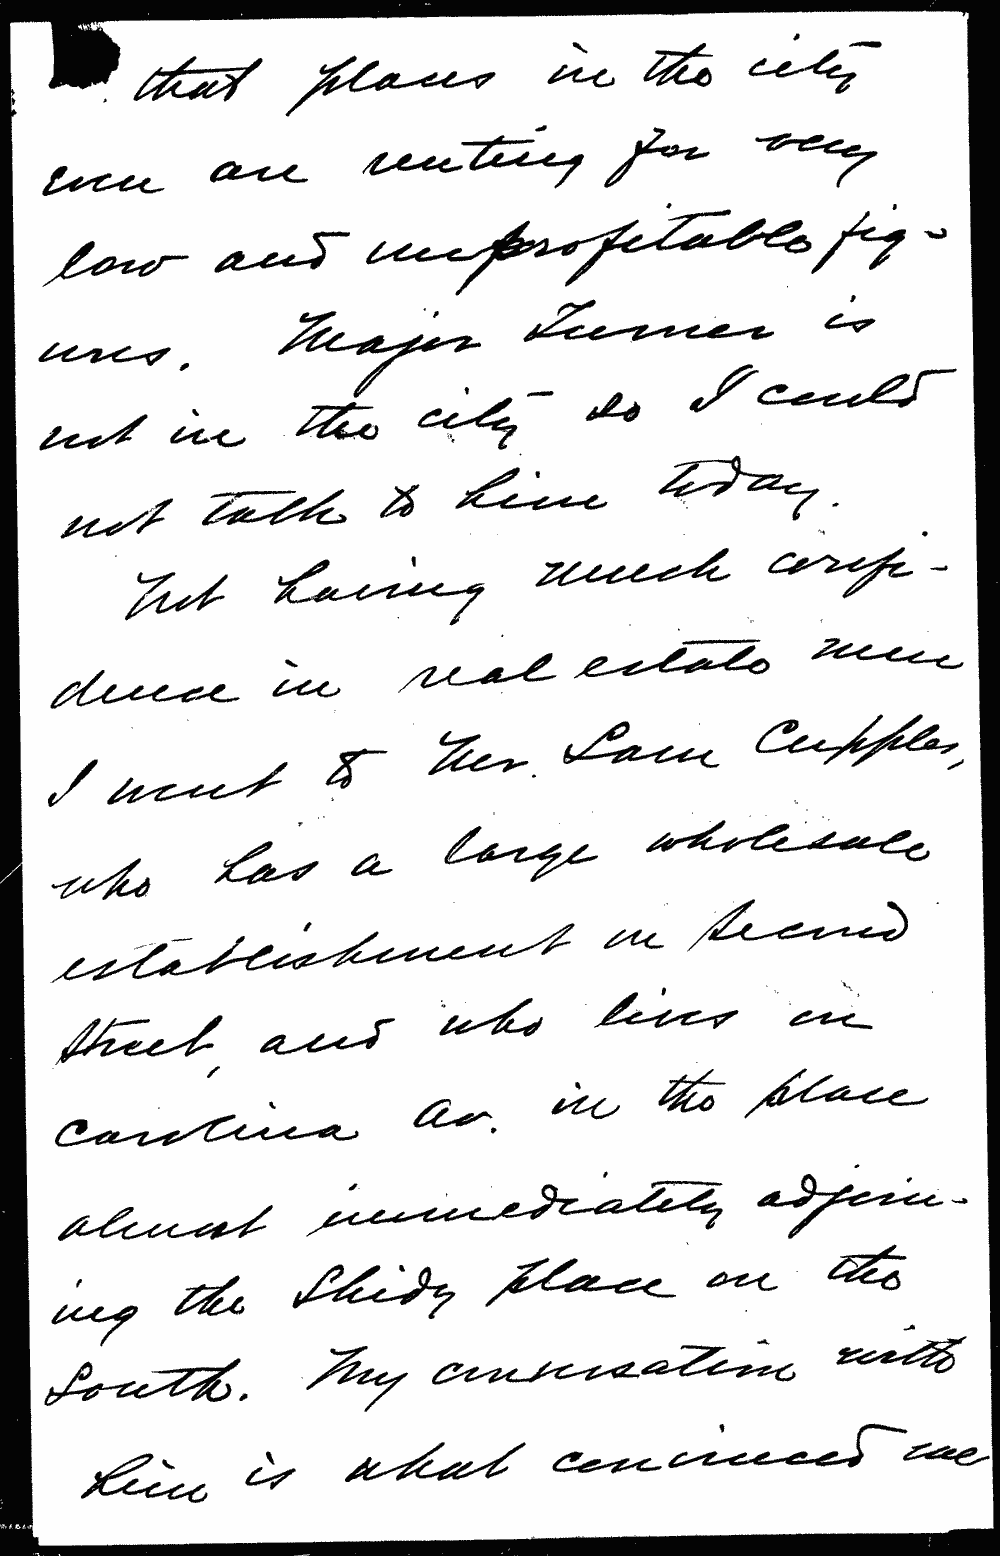 that places in the city
even are renting for very
low and unprofitable fig-
ures. Major Turner is
not in the city so I could
not talk to him today.
Not having much confi-
dence in real estate men
I went to Mr. Sam Cupples,
who has a large wholesale
establishment on Second
Street, and who lives on
Carolina Av. in the place
almost immediately adjoin-
ing the Shidy place on the
South. My conversation with
him is what convinced me